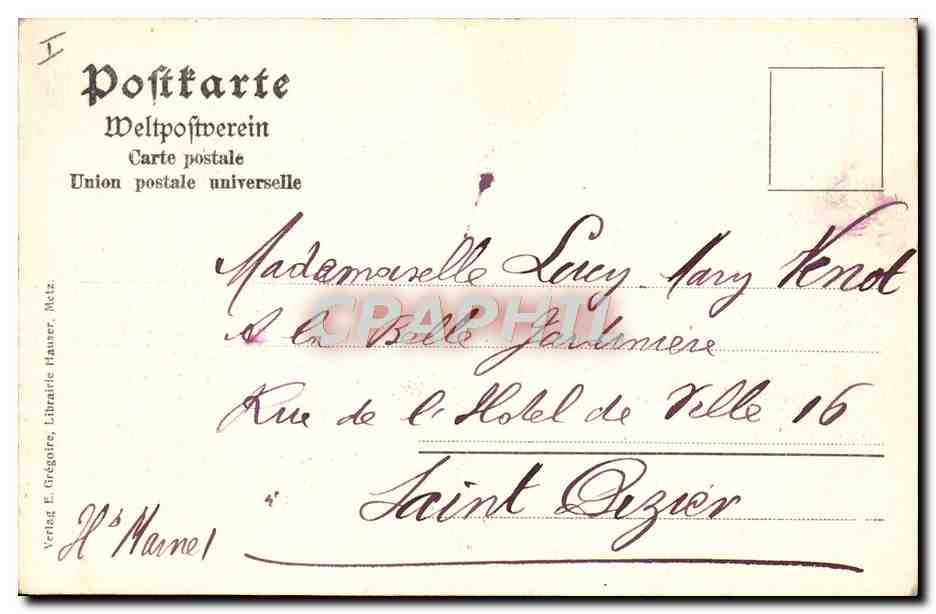 I
Postkarte
Weltpostverein
Carte postale
Union postale universelle
Mademoiselle Lucy Mary Venot
A la Belle Jardiniere
Rue de l'Hotel de Ville 16
Saint Dizier
Hte Marne
Verlag E. Grégoire, Librairie Hauser, Metz.
CPAPHTI